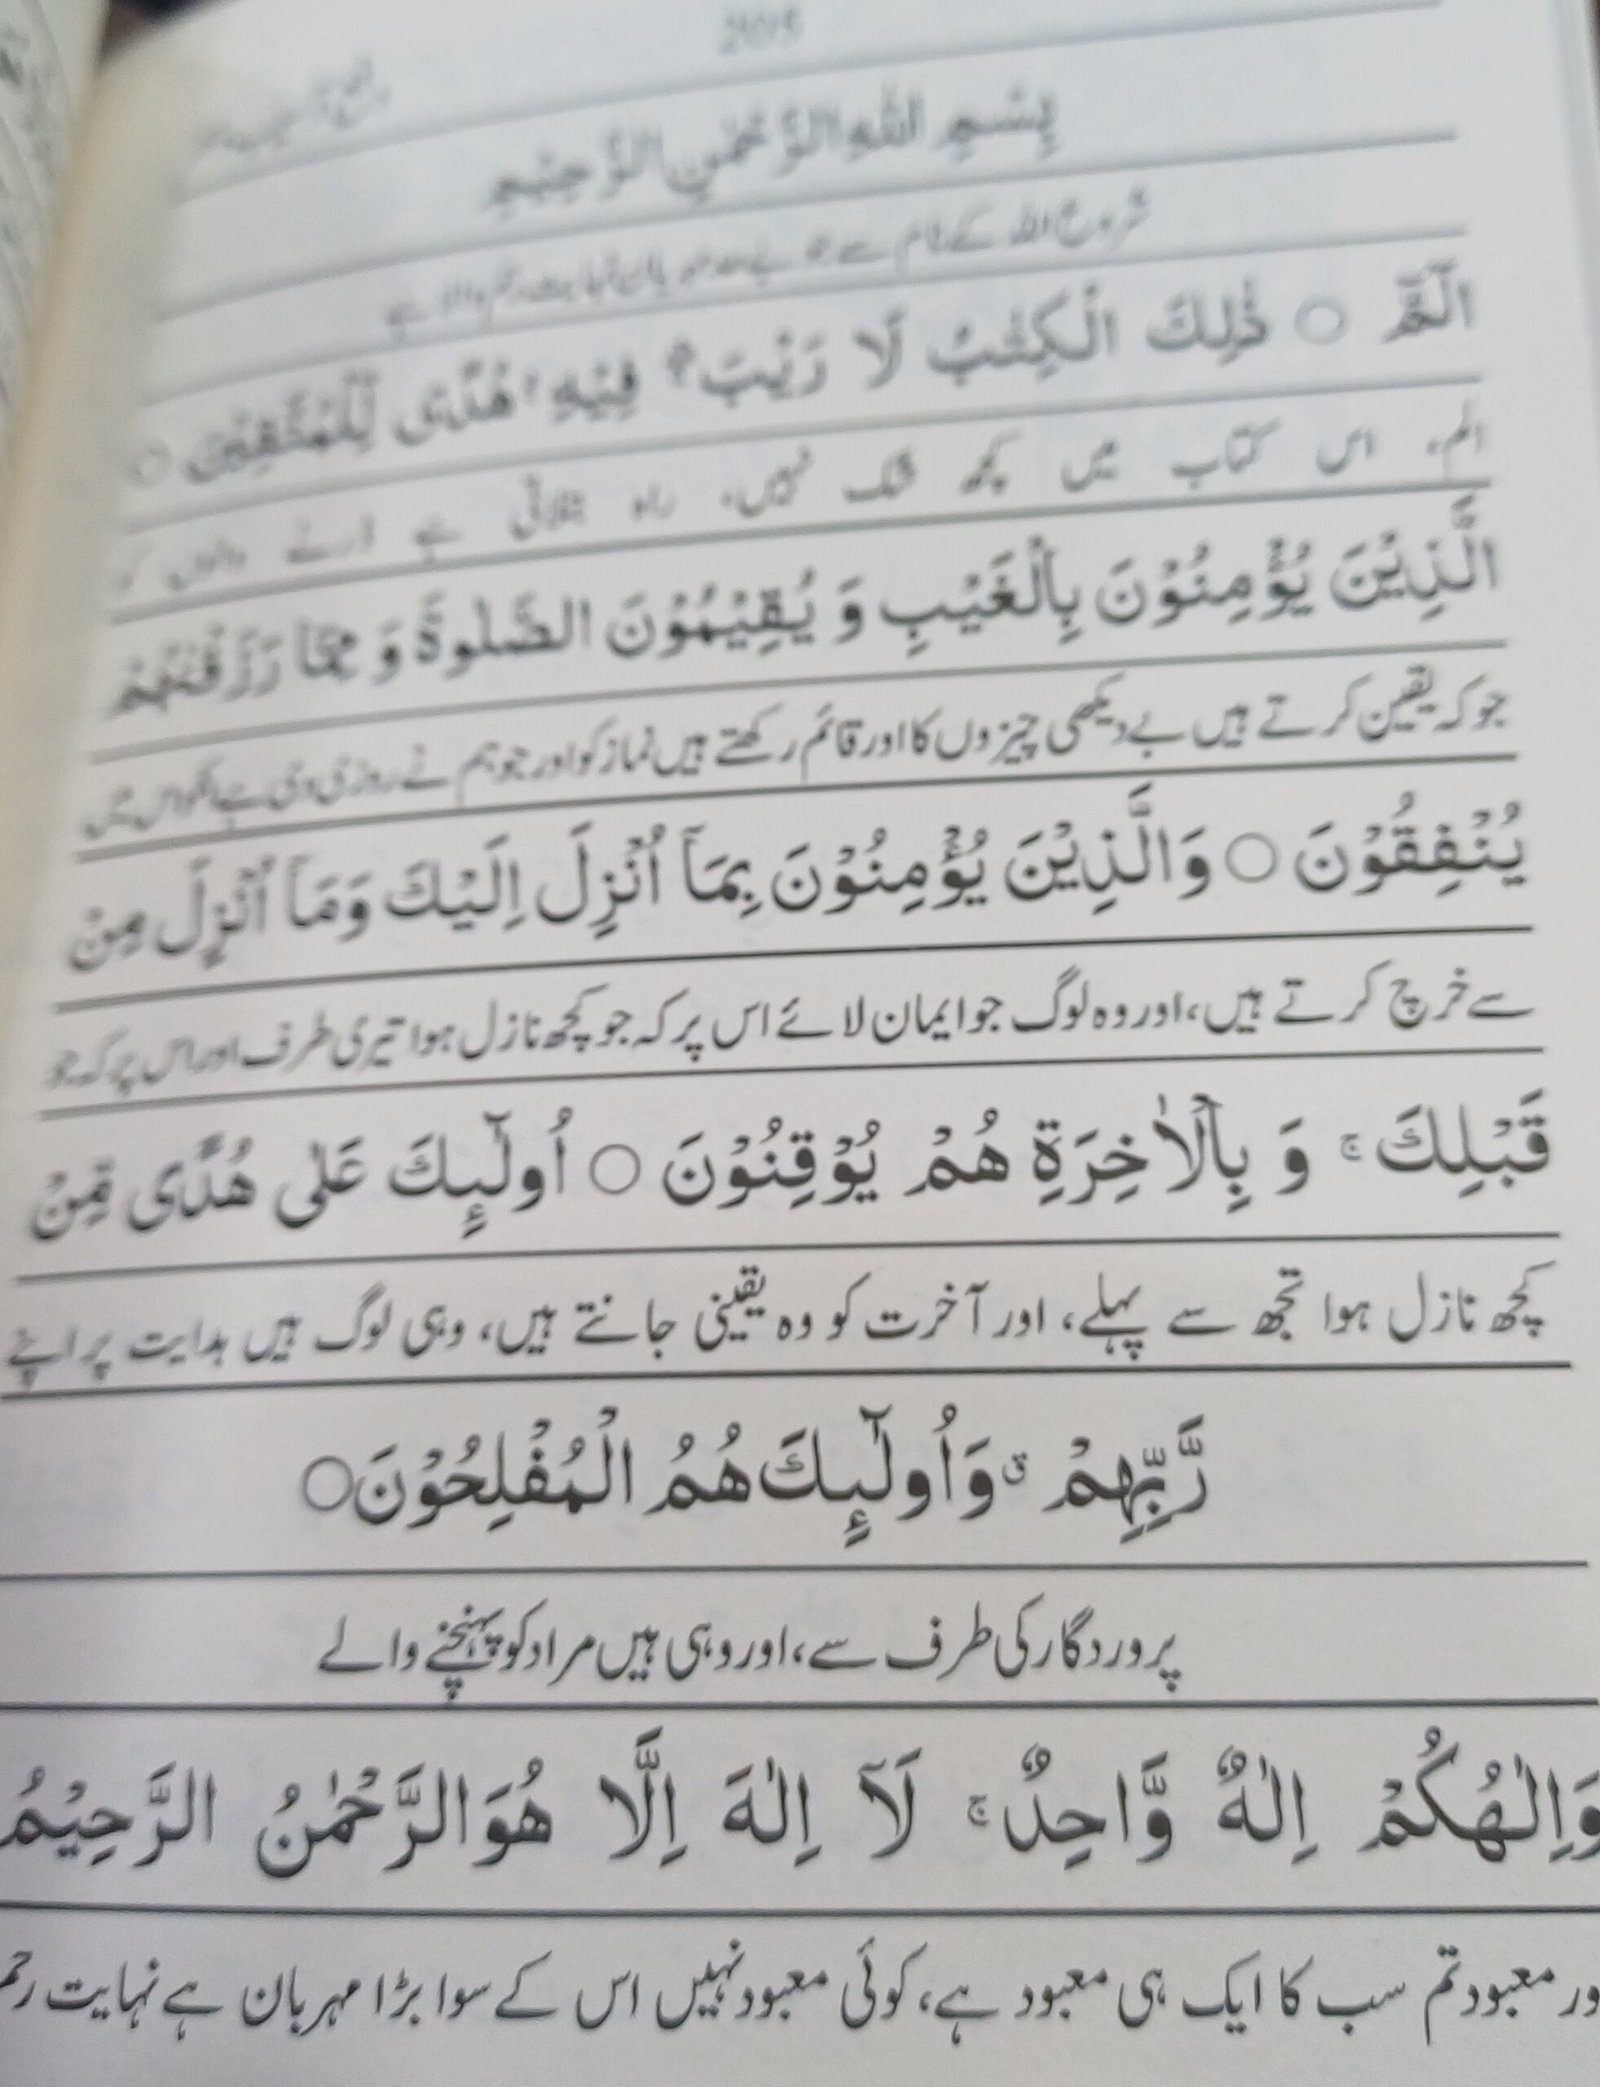 بِسْمِ اللهِ الرَّحْمٰنِ الرَّحِيْمِ
شروع اللہ کے نام سے جو بے حد مہربان نہایت رحم والا ہے
الٓمّٓ ○ ذٰلِكَ الْكِتٰبُ لَا رَيْبَ ۛ فِيْهِ ۛ هُدًى لِّلْمُتَّقِيْنَ ○
الم، اس کتاب میں کچھ شک نہیں، راہ بتلاتی ہے ڈرنے والوں کو
الَّذِيْنَ يُؤْمِنُوْنَ بِالْغَيْبِ وَ يُقِيْمُوْنَ الصَّلٰوةَ وَ مِمَّا رَزَقْنٰهُمْ
جو کہ یقین کرتے ہیں بے دیکھی چیزوں کا اور قائم رکھتے ہیں نماز کو اور جو ہم نے روزی دی ہے انکو اس میں
يُنْفِقُوْنَ ○ وَالَّذِيْنَ يُؤْمِنُوْنَ بِمَآ اُنْزِلَ اِلَيْكَ وَمَآ اُنْزِلَ مِنْ
سے خرچ کرتے ہیں، اور وہ لوگ جو ایمان لائے اس پر کہ جو کچھ نازل ہوا تیری طرف اور اس پر کہ جو
قَبْلِكَ ۚ وَ بِالْاٰخِرَةِ هُمْ يُوْقِنُوْنَ ○ اُولٰٓئِكَ عَلٰى هُدًى مِّنْ
کچھ نازل ہوا تجھ سے پہلے، اور آخرت کو وہ یقینی جانتے ہیں، وہی لوگ ہیں ہدایت پر اپنے
رَّبِّهِمْ ۗ وَاُولٰٓئِكَ هُمُ الْمُفْلِحُوْنَ○
پروردگار کی طرف سے، اور وہی ہیں مراد کو پہنچنے والے
وَاِلٰهُكُمْ اِلٰهٌ وَّاحِدٌ ۚ لَآ اِلٰهَ اِلَّا هُوَ الرَّحْمٰنُ الرَّحِيْمُ
ور معبود تم سب کا ایک ہی معبود ہے، کوئی معبود نہیں اس کے سوا بڑا مہربان ہے نہایت رحم